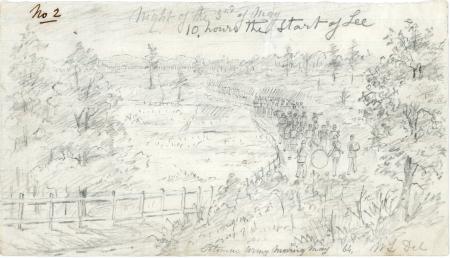 No 2
Night of the 3rd of May
10, hours the start of Lee
Army moving May 64.
Del